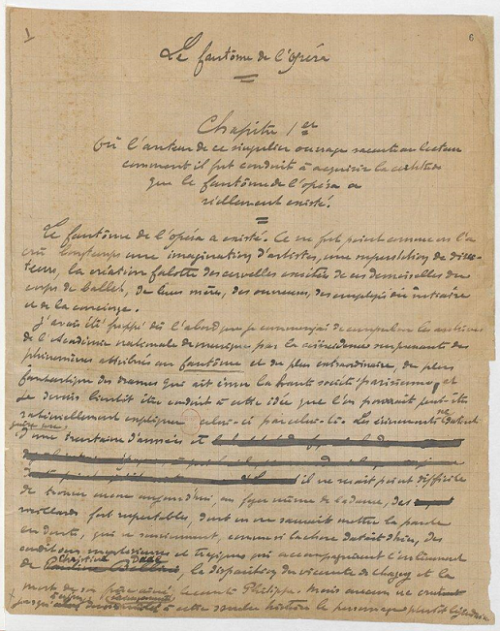 1
6
Le fantôme de l'opéra
Chapitre 1er
Où l'auteur de ce singulier ouvrage raconte au lecteur
comment il fut conduit à acquérir la certitude
que le fantôme de l'opéra a
réellement existé.
Le fantôme de l'opéra a existé. Ce ne fut point comme on l'a
cru longtemps une imagination d'artistes, une superstition de direc-
teurs, la création falotte des cervelles excitées de ces demoiselles du
corps de ballet, de leurs mères, des ouvreuses, des employés du vestiaire
et de la concierge.
J'avais été frappé dès l'abord que je commençai de compulser les archives
de l'Académie nationale de musique par la coïncidence surprenante des
phénomènes attribués au fantôme et du plus extraordinaire, du plus
fantastique des drames qui ait ému la haute société parisienne, et
je devais bientôt être conduit à cette idée que l'on pourrait peut-être
rationnellement expliquer celui-ci par celui-là. Les événements ne datent
guère que
d'une trentaine d'années et
il ne serait point difficile
de trouver encore aujourd'hui, au foyer même de la danse, des
vieillards fort respectables, dont on ne saurait mettre la parole
en doute, qui se souviennent, comme si la chose datait d'hier, des
conditions mystérieuses et tragiques qui accompagnèrent l'enlèvement
Christine Daaé
de, la disparition du vicomte de Chagny et la
mort de son frère aîné, le comte Philippe. Mais aucun ne
jusqu' à cette sombre histoire le personnage plutôt légendaire